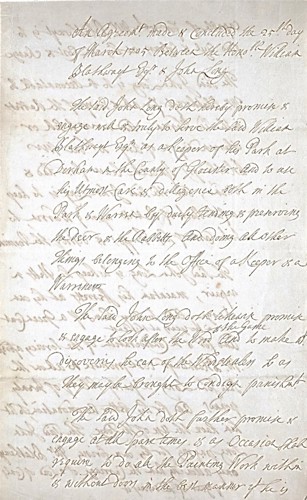 An Agreemt. made & Concluded the 25th day
of March 1705 Between the Honble. William
Blathwayt Esqr. & John Long
The said John Long doth hereby promise &
engage well & truly to serve the said William
Blathwayt Esqr. as a keeper of his Park at
Dirham in the County of Glouster And to use
the Utmost Care & dilligence both in the
Park & Warren by duely tending & preserving
the Deer & the Rabbetts, And doing all other
things belonging to the Office of a keeper & a
Warriner
The said John Long doth likewise promise
& engage to look after the Wood & the Game And to make it
discoverys he can of the Woodstealers so as
they may be brought to Condign punishmt.
The said John doth further promise &
engage at all spare times & as Occasion shall
require to do all the Painting Work within
& without doors in the best manner &